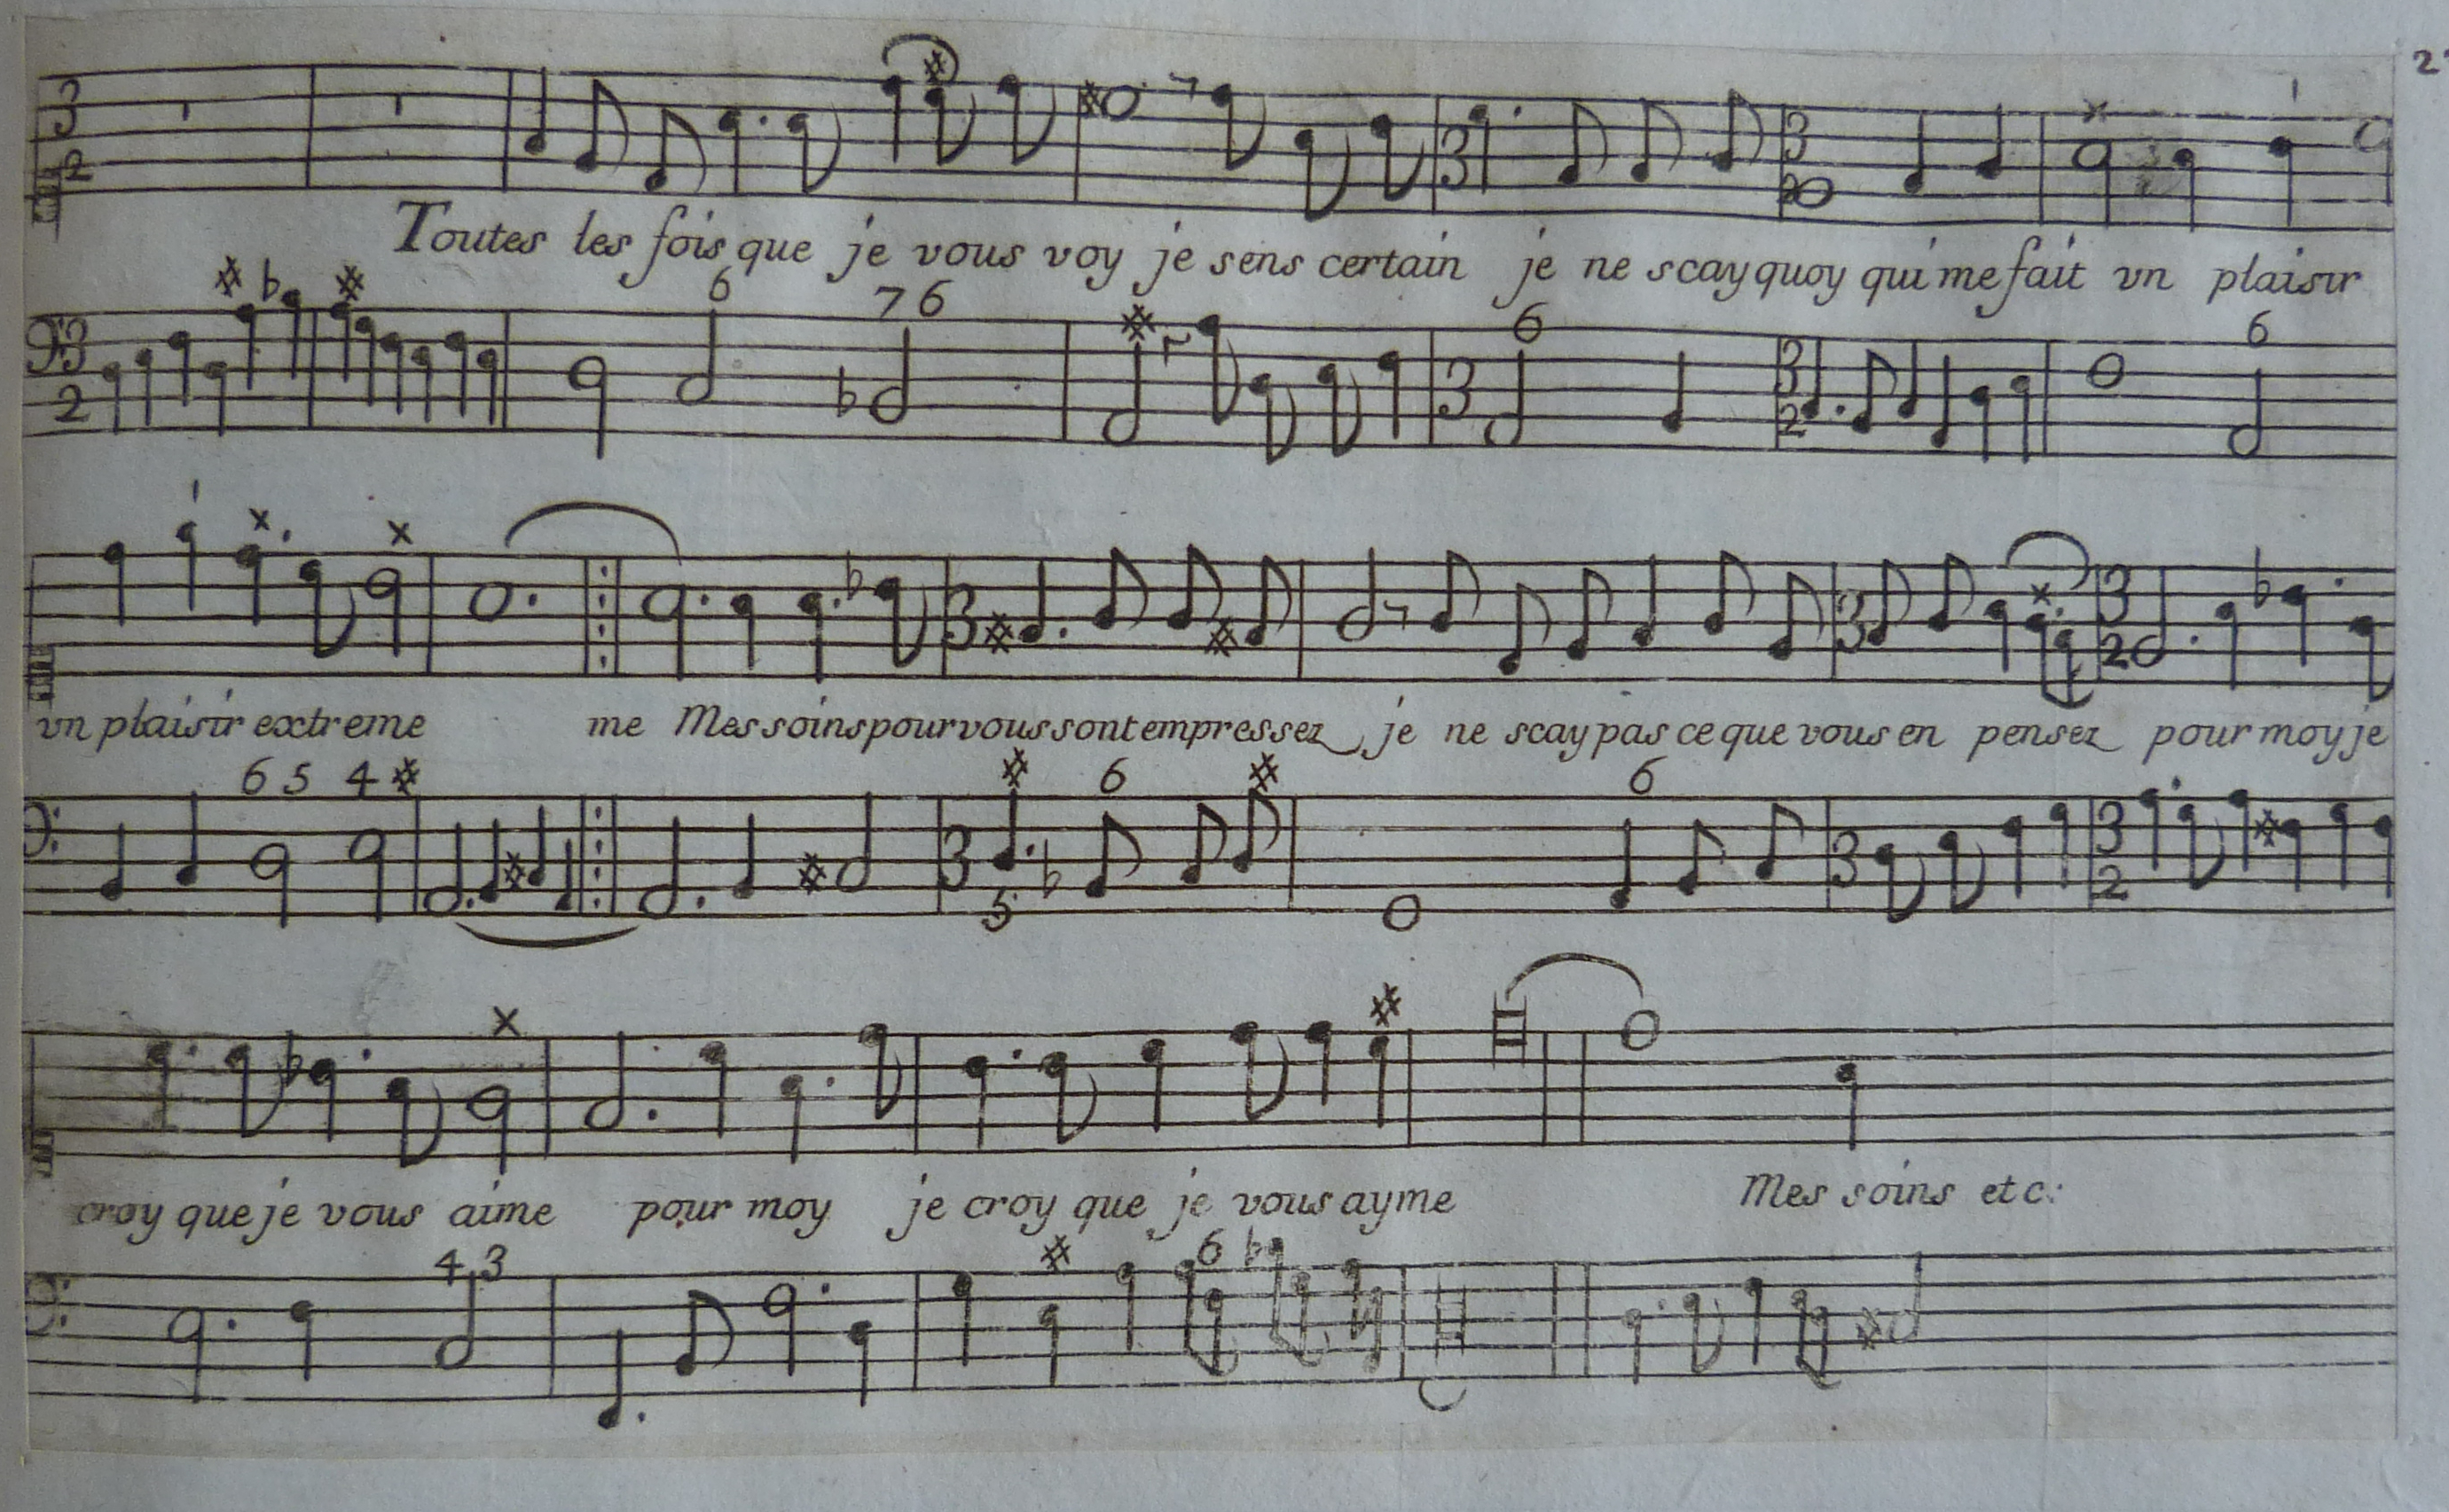 Toutes les fois que je vous voy je sens certain je ne scay quoy qui me fait vn plaisir
6 7 6 6 6
vn plaisir extreme me Mes soins pour vous sont empressez je ne scay pas ce que vous en pensez pour moy je
6 5 4 6 6
5
croy que je vous aime pour moy je croy que je vous ayme Mes soins etc:
4 3 6